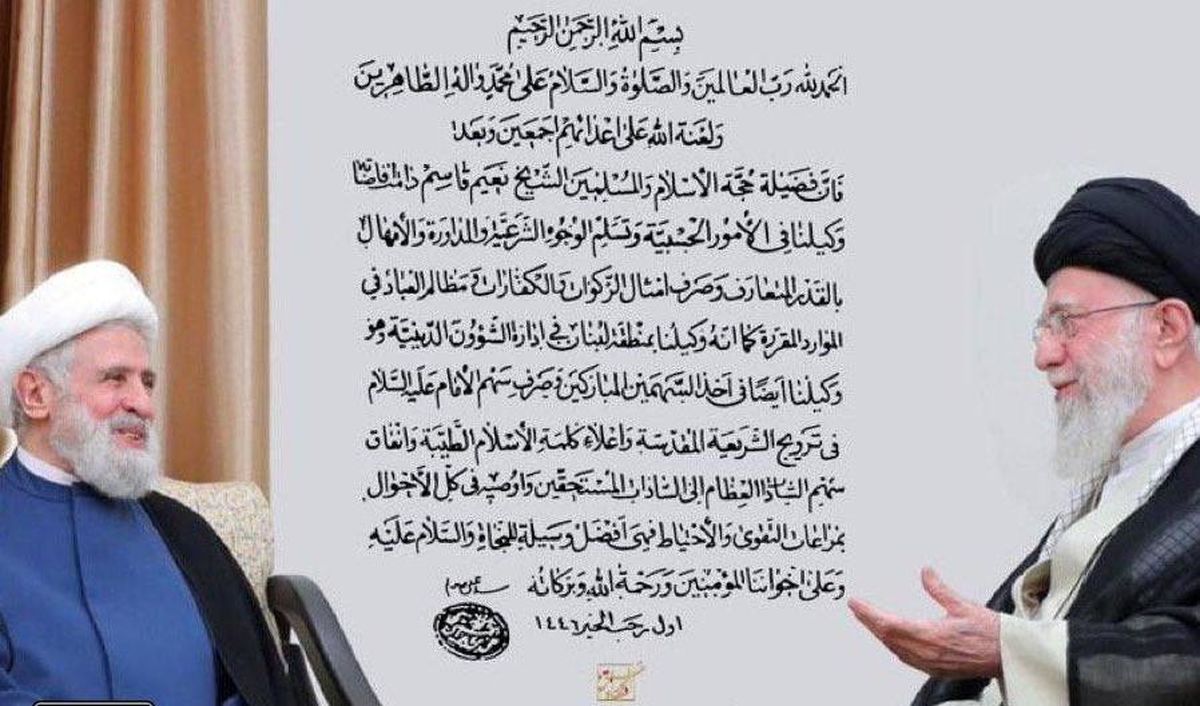 بِسْمِ اللهِ الرَّحْمٰنِ الرَّحِيْمِ
الحمد لله رب العالمين والصلوة والسلام على محمد واله الطاهرين
ولعنة الله على اعدائهم اجمعين وبعد
فان فضيلة حجة الاسلام والمسلمين الشيخ نعيم قاسم دامت افاضاته
وكيلنا في الأمور الحسبية وتسلم الوجوه الشرعية والمداورة والأمهال
بالقدر المتعارف وصرف امثال الزكوات والكفارات ومظالم العباد في
الموارد المقررة كما انه وكيلنا بمنطقة لبنان في ادارة الشؤون الدينية وهو
وكيلنا ايضا في اخذ السهمين المباركين وصرف سهم الامام عليه السلام
في ترويج الشريعة المقدسة واعلاء كلمة الاسلام الطيبة وانفاق
سهم السادة العظام الى السادات المستحقين واوصيه في كل الأحوال
بمراعات التقوى والأحتياط فهي أفضل وسيلة للنجاة والسلام عليه
وعلى اخواننا المؤمنين ورحمة الله وبركاته
اول رجب الخير ١٤٤٦